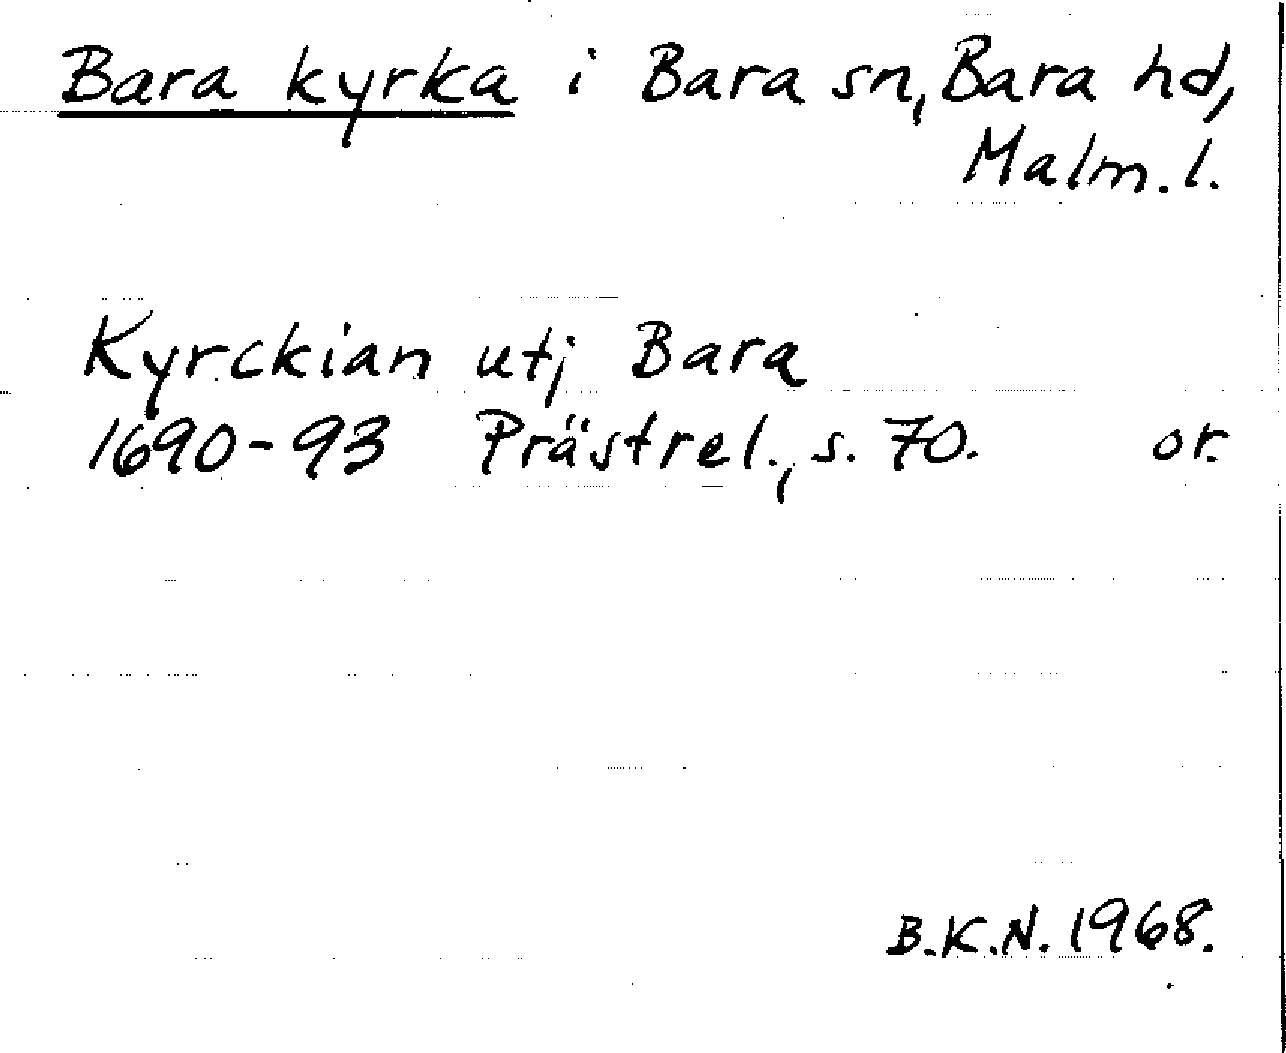 Bara kyrka i Bara sn, Bara hd,
Malm. l.
Kyrckian utj Bara
1690-93 Prästrel., s. 70. or.
B.K.N. 1968.